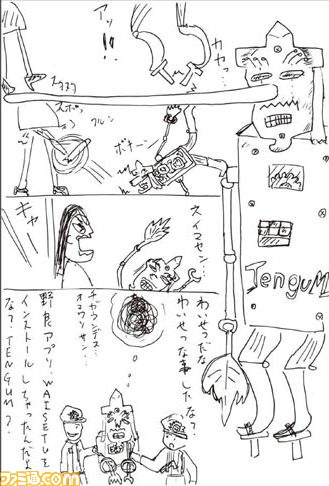 アッ!!
カカッ…
スポッ
フルン
ボキーン
Jengum
キャー
スイマセン…
わいせつだな
わいせつな事したな?
チガウンデス…
オマワリサン…
野良アプリ:WAISETUを
インストールしちゃったんだよ
な?TENGUM?
ファミ通.com